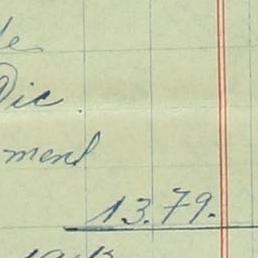 de
Dic.
ment
13.79.